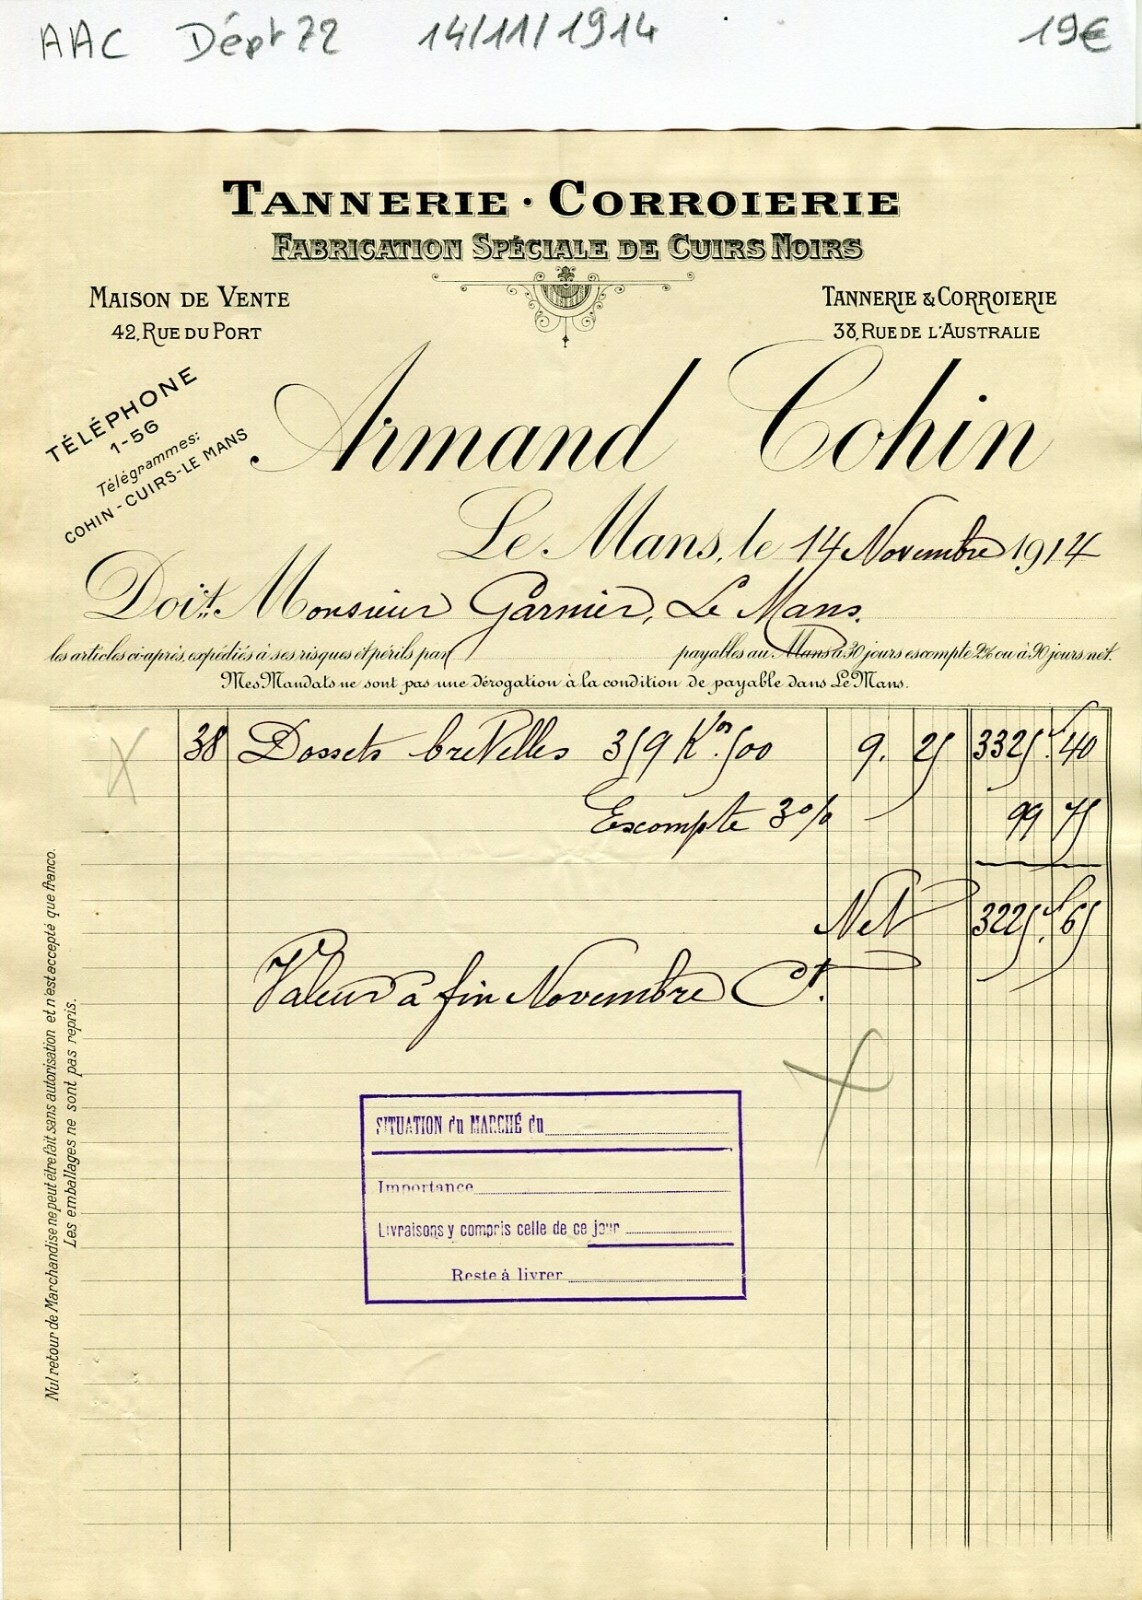 AAC Dépt 72 14/11/1914 19€
TANNERIE · CORROIERIE
FABRICATION SPÉCIALE DE CUIRS NOIRS
MAISON DE VENTE
42, RUE DU PORT
TANNERIE & CORROIERIE
38, RUE DE L'AUSTRALIE
TÉLÉPHONE
1-56
Télégrammes:
COHIN-CUIRS-LE MANS
Armand Cohin
Le Mans, le 14 Novembre 1914
Doit Monsieur Garnier, Le Mans.
les articles ci-après, expédiés à ses risques et périls par payables au Mans à 30 jours escompte 2% ou à 90 jours net.
Mes Mandats ne sont pas une dérogation à la condition de payable dans Le Mans.
38 Dossets 359 Kos 500 9. 25 3325f. 40
Escompte 3% 99 75
Net 3225f. 65
Valeur à fin Novembre Ct.
SITUATION du MARCHÉ du
Importance
Livraisons y compris celle de ce jour
Reste à livrer
Nul retour de Marchandise ne peut être fait sans autorisation et n'est accepté que franco.
Les emballages ne sont pas repris.